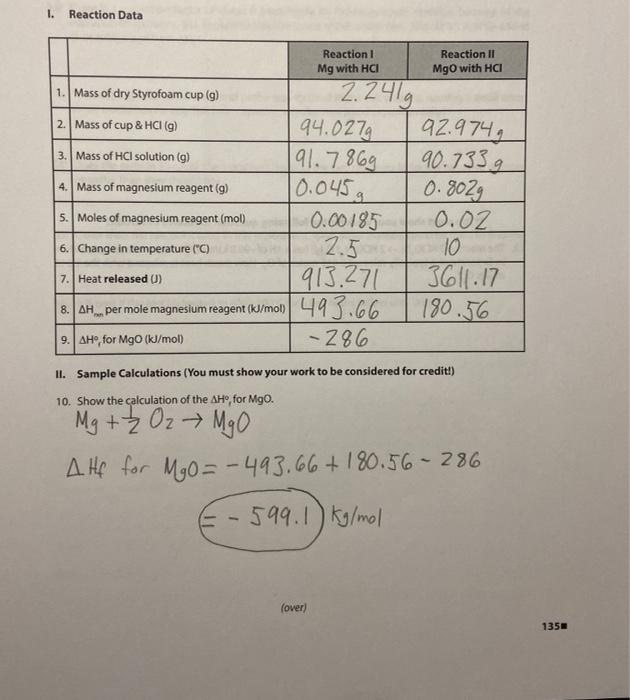 I. Reaction Data
Reaction I Reaction II
Mg with HCl MgO with HCl
1. Mass of dry Styrofoam cup (g) 2.241g
2. Mass of cup & HCl (g) 94.027g 92.974g
3. Mass of HCl solution (g) 91.786g 90.733g
4. Mass of magnesium reagent (g) 0.045g 0.802g
5. Moles of magnesium reagent (mol) 0.00185 0.02
6. Change in temperature (°C) 2.5 10
7. Heat released (J) 913.271 3611.17
8. ΔHrxn per mole magnesium reagent (kJ/mol) 493.66 180.56
9. ΔH°f for MgO (kJ/mol) -286
II. Sample Calculations (You must show your work to be considered for credit!)
10. Show the calculation of the ΔH°f for MgO.
Mg + ½ O2 → MgO
ΔHf for MgO = -493.66 + 180.56 - 286
= - 599.1 kg/mol
(over)
135■